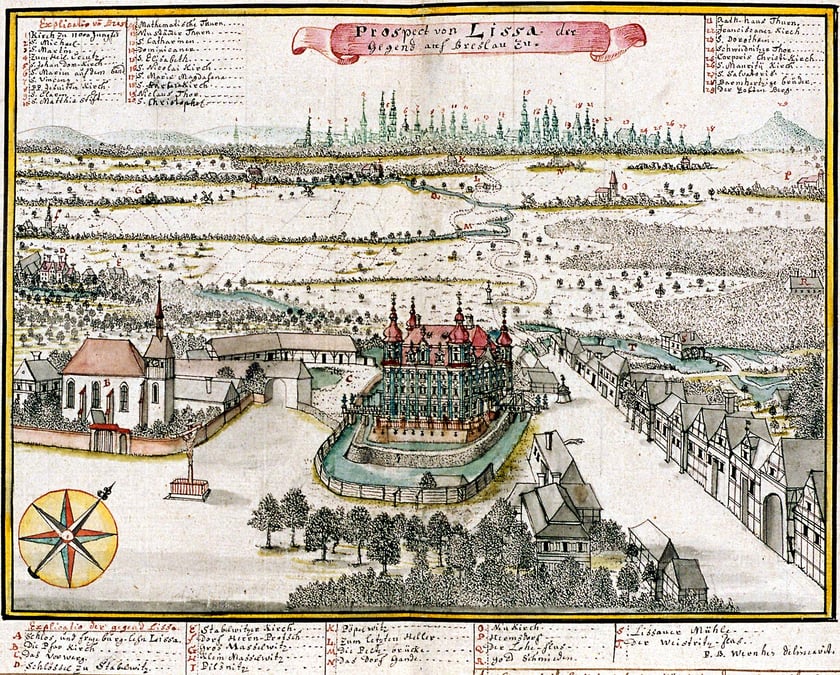 Prospect von Lissa der
Gegend auf Breslau Zu.
Explicatio v̄ Bresl
1 Kirch zu 11000 Jungfr
2 S. Michael
3 S. Martin
4 Zum Heil. Creutz
5 S. Johan Dom-Kirch
6 S. Maria auf dem Sand
7 S. Vincenz
8 PP. Jesuiter Kirch
9 S. Claren Stift
10 S. Matthia Stift
11 Mathematische Thurn
12 Neustädter Thurn
13 S. Catharinen
14 Dominicaner
15 S. Elisabeth
16 S. Nicolai Kirch
17 S. Maria Magdalena
18 S. Barbara Kirch
19 Niclaus Thor
20 S. Christophel
21 Rath-haus Thurn
22 Franciscaner Kirch
23 S. Dorothea
24 Schweidnitzer Thor
25 Corporis Christi Kirch
26 S. Mauritii Kirch
27 S. Salvatoris
28 Barmhertzige brüder
29 Der Zobten Berg
Explicatio der gegend Lissa
A Schlos, und freye burg-lehn Leissa
B Die Pfar Kirch
C Das Vorwerg
D Schlössel zu Stabelwitz
E Stabelwitzer Kirch
F Dorf Herrn-Protsch
G Gros Masselwitz
H Klein Masselwitz
I Pilsnitz
K Pöpelwitz
L Zum letzten Heller
M Die Pech-brücke
N Das Dorf Gandi
O Neu Kirch
P Hermsdorf
Q Der Lohe flus
R Gold Schmieden
S Lissauer Mühle
T Der Weistritz flus
F. B. Wernher delineavit